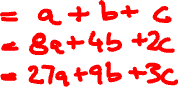 = a + b + c
= 8a + 4b + 2c
= 27a + 9b + 3c